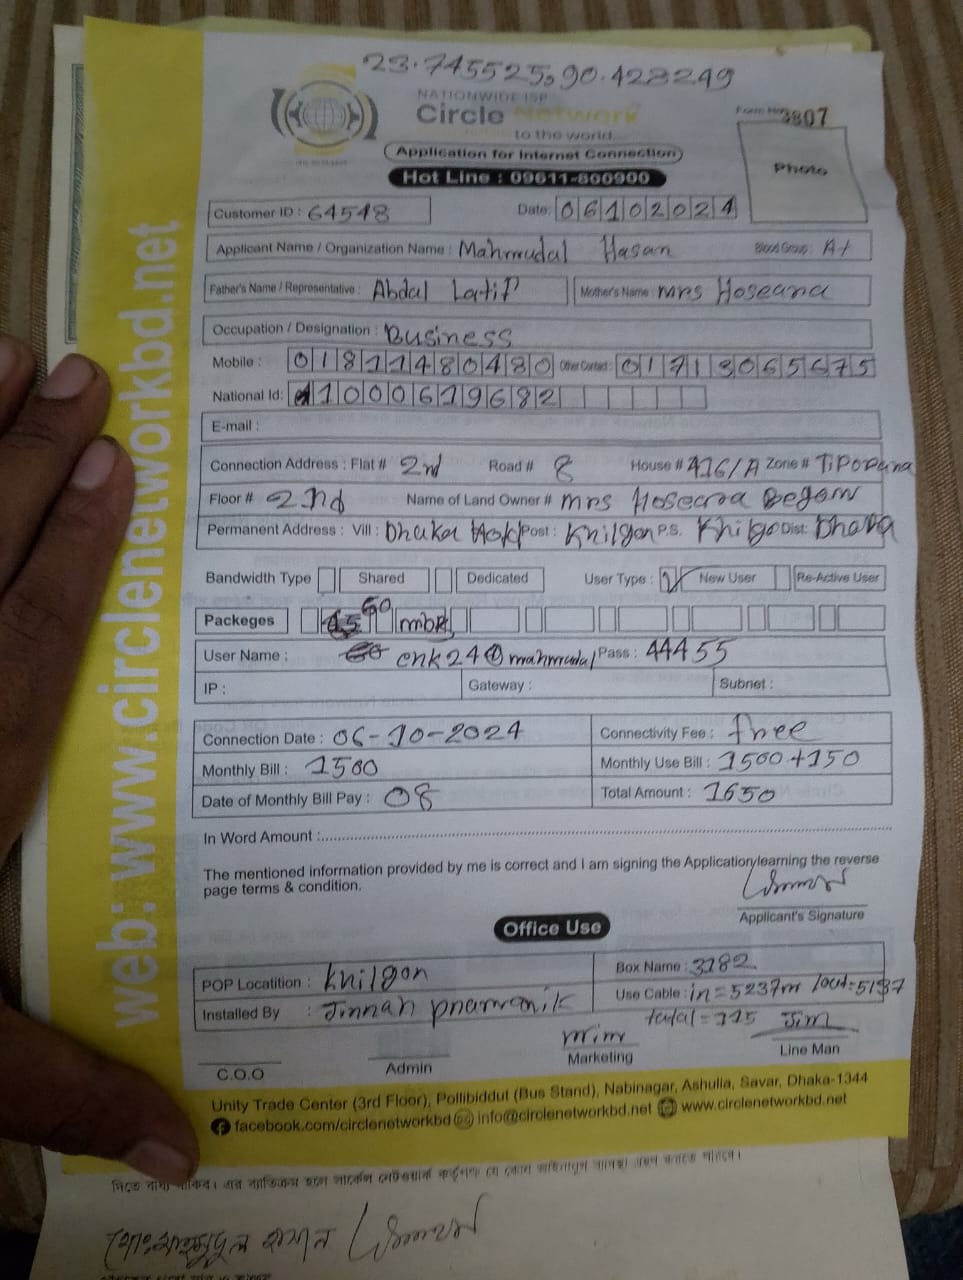 23.745525,90.428249
NATIONWIDE ISP
Circle Network
to the world...
Form No. 3807
Photo
Application for Internet Connection
Hot Line : 09611-800900
Customer ID : 64548 Date: 06102024
Applicant Name / Organization Name : Mahmudal Hasan Blood Group: A+
Father's Name / Representative : Abdal Latif Mother's Name : mrs Hoseara
Occupation / Designation : Business
Mobile : 01811480480 Other Contact : 01713065675
National Id: 1000619682
E-mail :
Connection Address : Flat # 2nd Road # 8 House # 416/A Zone #
Floor # 2nd Name of Land Owner # mrs Begom
Permanent Address : Vill : Dhaka Post : Khilgon P.S. Khilgo Dist:
Bandwidth Type Shared Dedicated User Type : New User Re-Active User
Packeges 60 mbps
User Name : cnk24@mahmudal Pass : 44455
IP : Gateway : Subnet :
Connection Date : 06-10-2024 Connectivity Fee : free
Monthly Bill : 1500 Monthly Use Bill : 1500+150
Date of Monthly Bill Pay : 08 Total Amount : 1650
In Word Amount :
The mentioned information provided by me is correct and I am signing the Application/learning the reverse
page terms & condition.
Applicant's Signature
Office Use
POP Locatition : Khilgon Box Name : 3182
Installed By : Jinnah pramanik Use Cable : in=5237m /out=5137
total=115
mim Jim
C.O.O Admin Marketing Line Man
Unity Trade Center (3rd Floor), Pollibiddut (Bus Stand), Nabinagar, Ashulia, Savar, Dhaka-1344
facebook.com/circlenetworkbd info@circlenetworkbd.net www.circlenetworkbd.net
web: www.circlenetworkbd.net
মোঃ মাহমুদুল হাসান